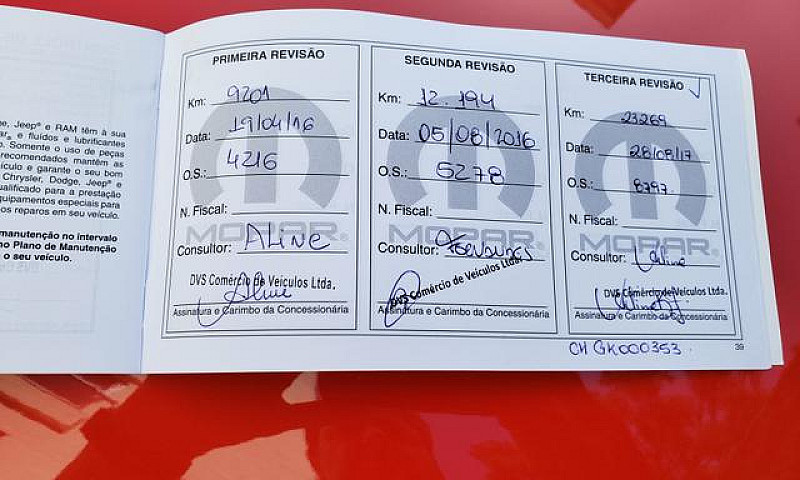 e, Jeep® e RAM têm à sua
ar, e fluídos e lubrificantes
o. Somente o uso de peças
recomendados mantêm as
ículo e garante o seu bom
Chrysler, Dodge, Jeep e
ualificado para a prestação
quipamentos especiais para
os reparos em seu veículo.
manutenção no intervalo
no Plano de Manutenção
e o seu veículo.
PRIMEIRA REVISÃO
Km: 9201
Data: 19/04/16
O.S.: 4216
N. Fiscal:
MOPAR®
Consultor: ALINE
DVS Comércio de Veículos Ltda.
Aline
Assinatura e Carimbo da Concessionária
SEGUNDA REVISÃO
Km: 12.194
Data: 05/08/2016
O.S.: 5278
N. Fiscal:
MOPAR®
Consultor:
DVS Comércio de Veículos Ltda.
Assinatura e Carimbo da Concessionária
TERCEIRA REVISÃO
Km: 23269
Data: 28/08/17
O.S.: 8797.
N. Fiscal:
MOPAR®
Consultor: Aline
DVS Comércio de Veículos Ltda.
Assinatura e Carimbo da Concessionária
CH GK000353.
39